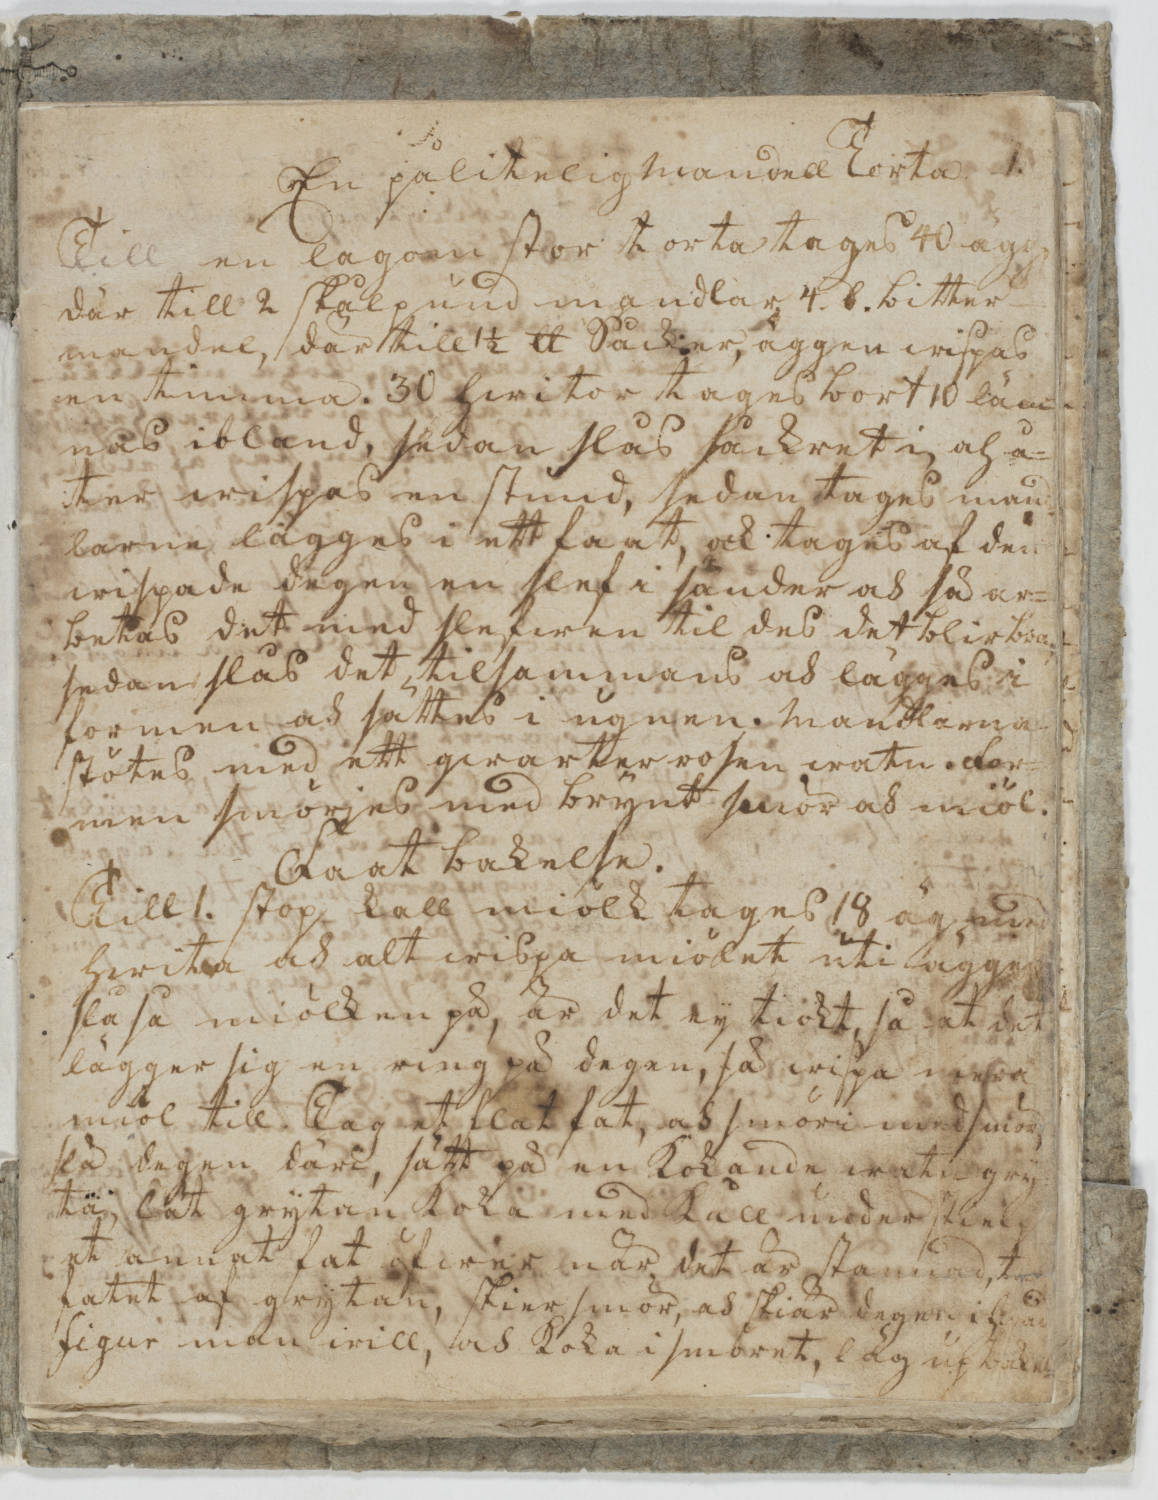 En pålitelig Mandell Torta. 1.
Till en lagom stor torta tages 40 ägg
där till 2 skålpund mandlar, 4. l. bitter
mandel, där till 1½ ℔ Såcker, äggen wispas
en timma. 30 hwitor tages bort 10 läm
nas ibland, sedan slås såckret i, och å=
ter wispas en stund, sedan tages man
larne lägges i ett faat, ock tages af den
wispade degen en slef i sänder och så ar=
betas det med slefwen til des det blir bra,
sedan slås det tilsammans och lägges i
formen och sättes i ugnen. Mandlarna
stötes med ett qwarter rosen watn. For=
men smörjes med brÿnt smör och miöl.
Faat bakelse.
Till 1. stop kall miölk tages 18 äg med
hwita och alt wispa miölet uti äggen
slå så miölken på, är det ej tiokt, så at det
lägger sig en ring på degen, så wispa mera
miöl till. Tag et flat fat, och smöri med smör,
slå degen däri, sätt på en Kokande watn gry
ta, låt grÿtan Koka med Kåll under stielp
et annat fat öfwer når det är stannad, tag
fatet af grÿtan, skier smör, och skiär degen i hwad
figur man will, och Koka i smöret, låg up bakel